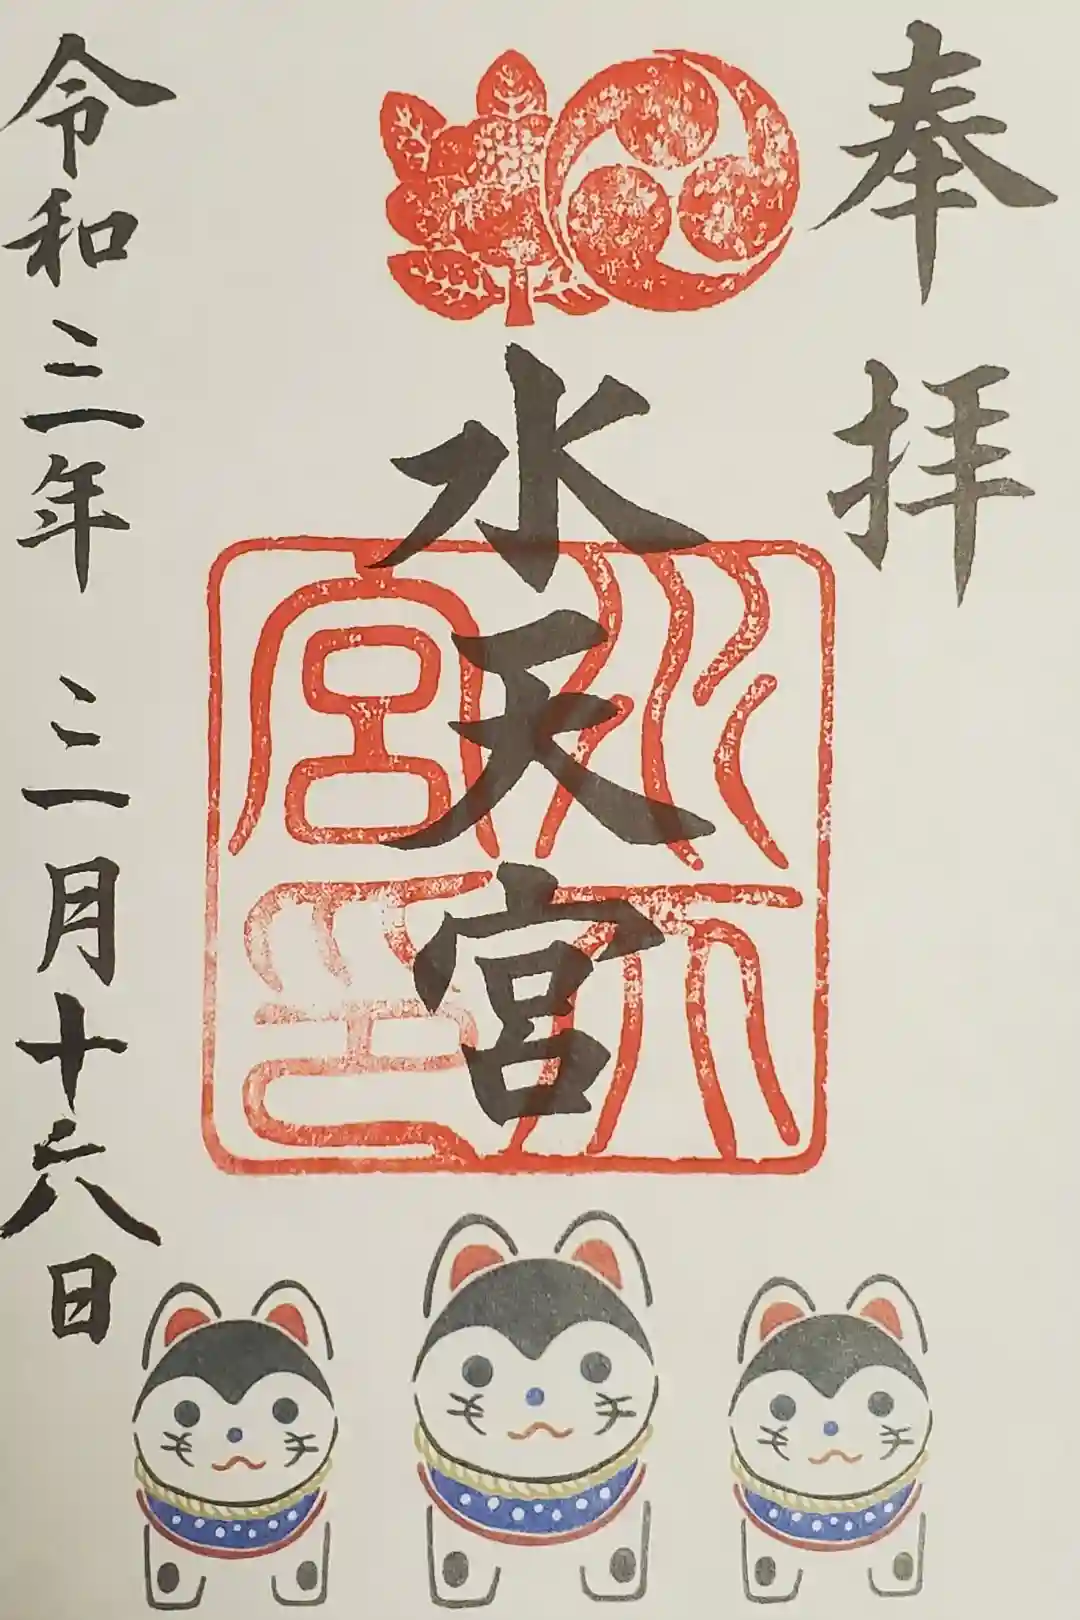 奉拝
水天宮
水天宮印
令和三年 三月十六日